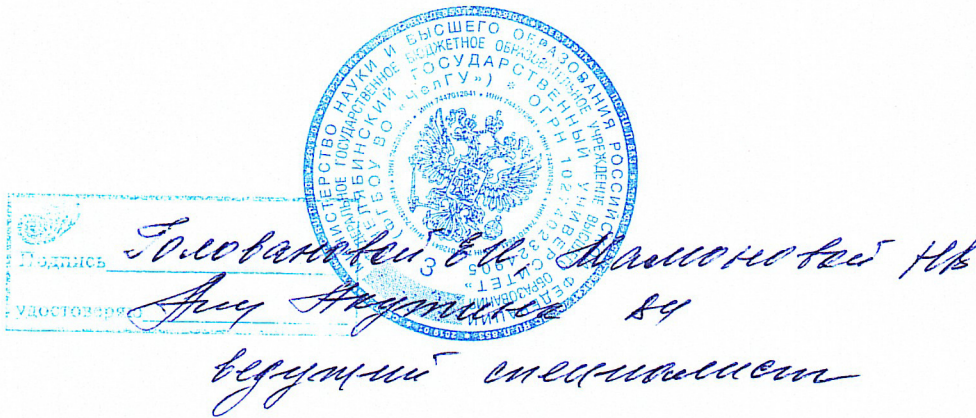 МИНИСТЕРСТВО НАУКИ И ВЫСШЕГО ОБРАЗОВАНИЯ РОССИЙСКОЙ ФЕДЕРАЦИИ
ФЕДЕРАЛЬНОЕ ГОСУДАРСТВЕННОЕ БЮДЖЕТНОЕ ОБРАЗОВАТЕЛЬНОЕ УЧРЕЖДЕНИЕ ВЫСШЕГО ОБРАЗОВАНИЯ
ЧЕЛЯБИНСКИЙ ГОСУДАРСТВЕННЫЙ УНИВЕРСИТЕТ"
(ФГБОУ ВО «ЧелГУ») * ОГРН
ИНН 7447012841 * ИНН 7447012841
3
Подпись Головановой ЕИ, Мамоновой НВ
удостоверяю Якутина
ведущий специалист